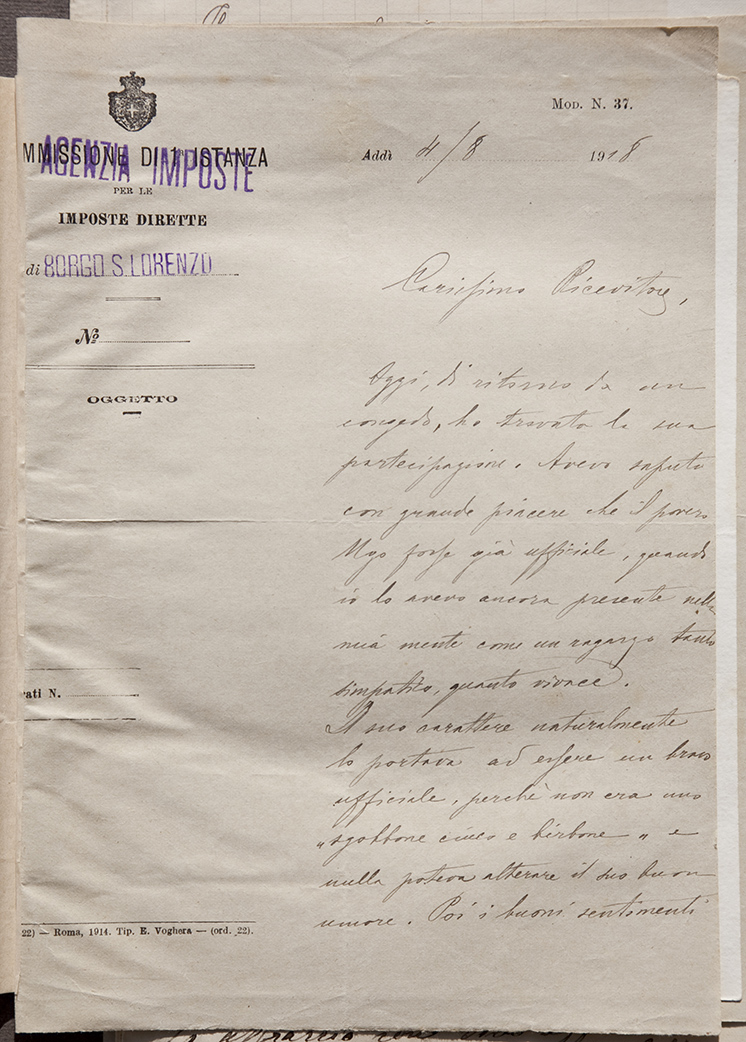 MOD. N. 37.
MMISSIONE DI 1ª ISTANZA
AGENZIA IMPOSTE
Addì 4/8 1918
PER LE
IMPOSTE DIRETTE
di BORGO S. LORENZO
Nº
OGGETTO
Carissimo Ricevitore,
Oggi, di ritorno da un
congedo, ho trovato la sua
partecipazione. Avevo saputo
con grande piacere che il povero
Ugo fosse già ufficiale, quando
io lo avevo ancora presente nella
mia mente come un ragazzo tanto
simpatico, quanto vivace.
Il suo carattere naturalmente
lo portava ad essere un bravo
ufficiale, perchè non era uno
"sgobbone ciuco e birbone" e
nulla poteva alterare il suo buon
umore. Poi i buoni sentimenti
rati N.
22) — Roma, 1914. Tip. E. Voghera — (ord. 22).